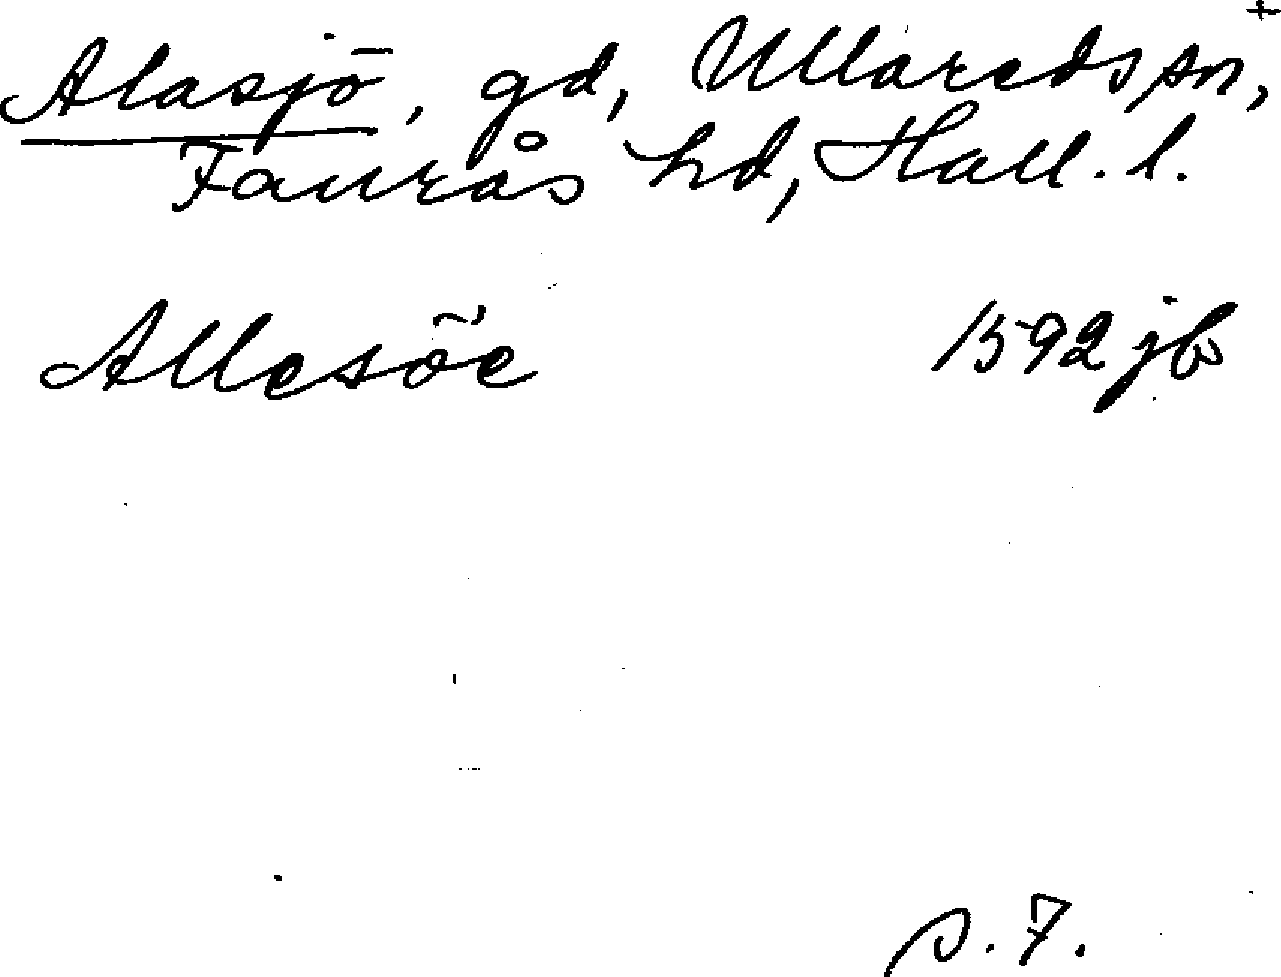 Alasjö, gd, Ullareds sn, +
Faurås hd, Hall. l.
Allesöe 1592 jb
s. 7.